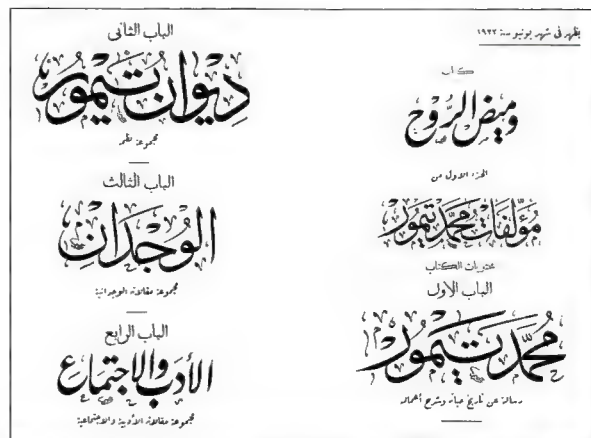 يظهر فى شهر يونيو سنة ١٩٢٢
كتاب
وميض الرُّوح
الجزء الاول من
مُؤلّفَات مُحَمَّد تَيمُور
محتويات الكتاب
الباب الأول
مُحَمَّد تَيمُور
رسالة عن تاريخ حياته وشرح أعماله
الباب الثانى
ديوان تَيمُور
مجموعة نظم
الباب الثالث
الوُجْدَان
مجموعة مقالاته الوجدانية
الباب الرابع
الأدَب وَالاجتماع
مجموعة مقالاته الأدبية والاجتماعية